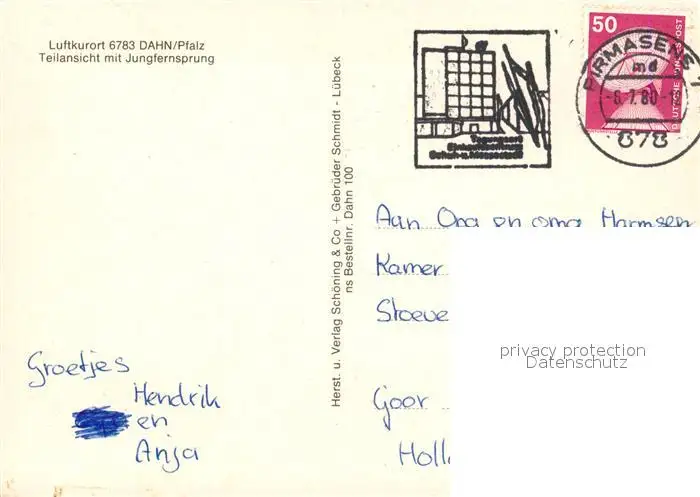 Luftkurort 6783 DAHN/Pfalz
Teilansicht mit Jungfernsprung
Groetjes
Hendrik
en
Anja
Herst. u. Verlag Schöning & Co + Gebrüder Schmidt - Lübeck
ns Bestellnr. Dahn 100
Tagungsort
Einkaufszentrum
Schuh-u. Messestadt
50
DEUTSCHE BUNDESPOST
PIRMASENS 1
md
-8.7.80-1
678
Aan Opa en oma Harmsen
Kamer
Stoeve
Goor
Holl
privacy protection
Datenschutz